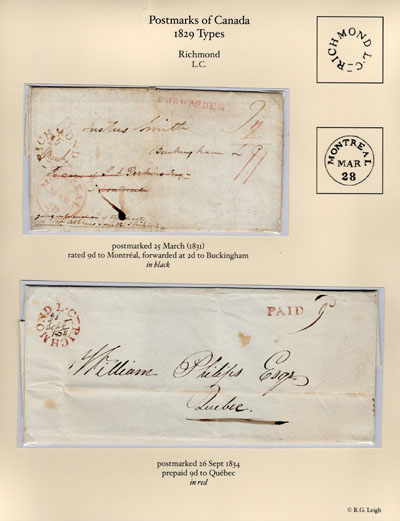 Postmarks of Canada
1829 Types
Richmond
L.C.
RICHMOND L.C.
MONTREAL
MAR
28
FORWARDED
Justus Smith
Buckingham
Montreal
postmarked 25 March (1831)
rated 9d to Montréal, forwarded at 2d to Buckingham
in black
RICHMOND L.C.
Sept
PAID 9
William Philips Esqr
Quebec.
postmarked 26 Sept 1834
prepaid 9d to Québec
in red
© R.G. Leigh